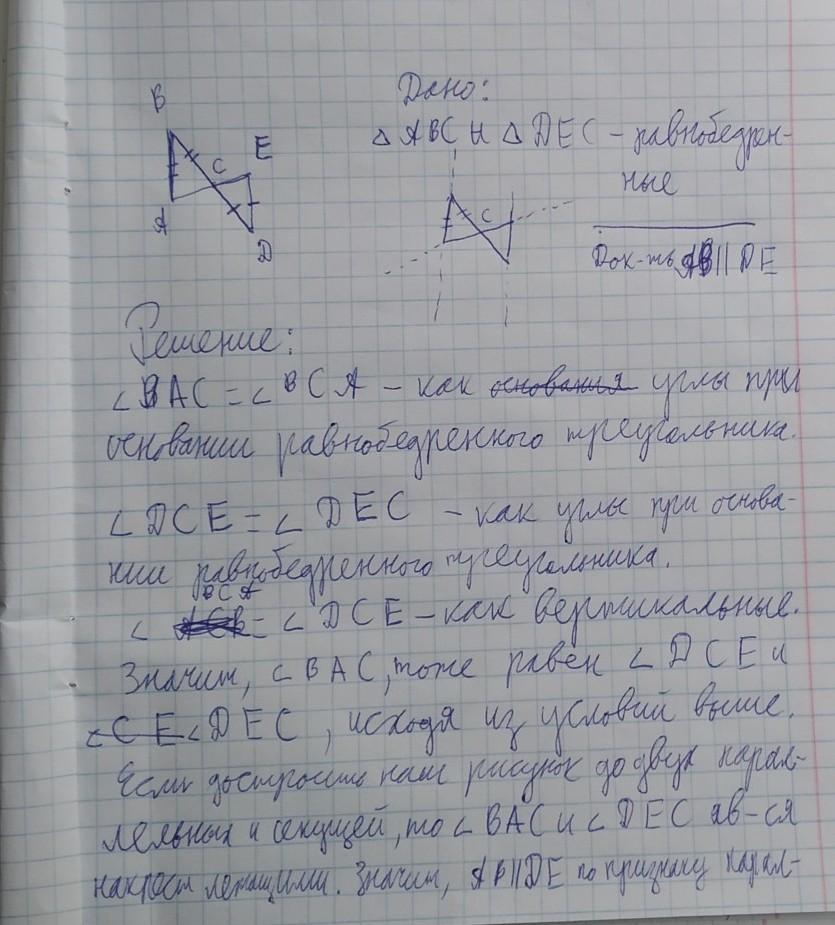 B
E
C
A
D
Дано:
△ ABC и △ DEC – равнобедрен-
ные
C
Док-ть AB || DE
Решение:
∠BAC = ∠BCA – как основания углы при
основании равнобедренного треугольника.
∠DCE = ∠DEC – как углы при основа-
нии равнобедренного треугольника.
BCA
∠ ACB = ∠DCE – как вертикальные.
Значит, ∠BAC, тоже равен ∠DCE и
∠CE ∠DEC, исходя из условий выше.
Если достроить наш рисунок до двух парал-
лельных и секущей, то ∠BAC и ∠DEC яв-ся
накрест лежащими. Значит, AB || DE по признаку парал-